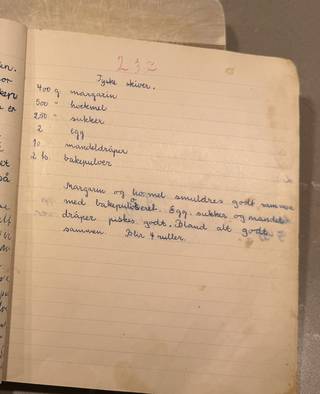 232
Tyske skiver.
400 g margarin
500 " hvetmel
250 " sukker
2 egg
10 mandeldråper
2 ts. bakepulver
Margarin og hv.mel smuldres godt sammen
med bakepulveret. Egg, sukker og mandel
dråper piskes godt. Bland alt godt
sammen. Blir 4 ruller.